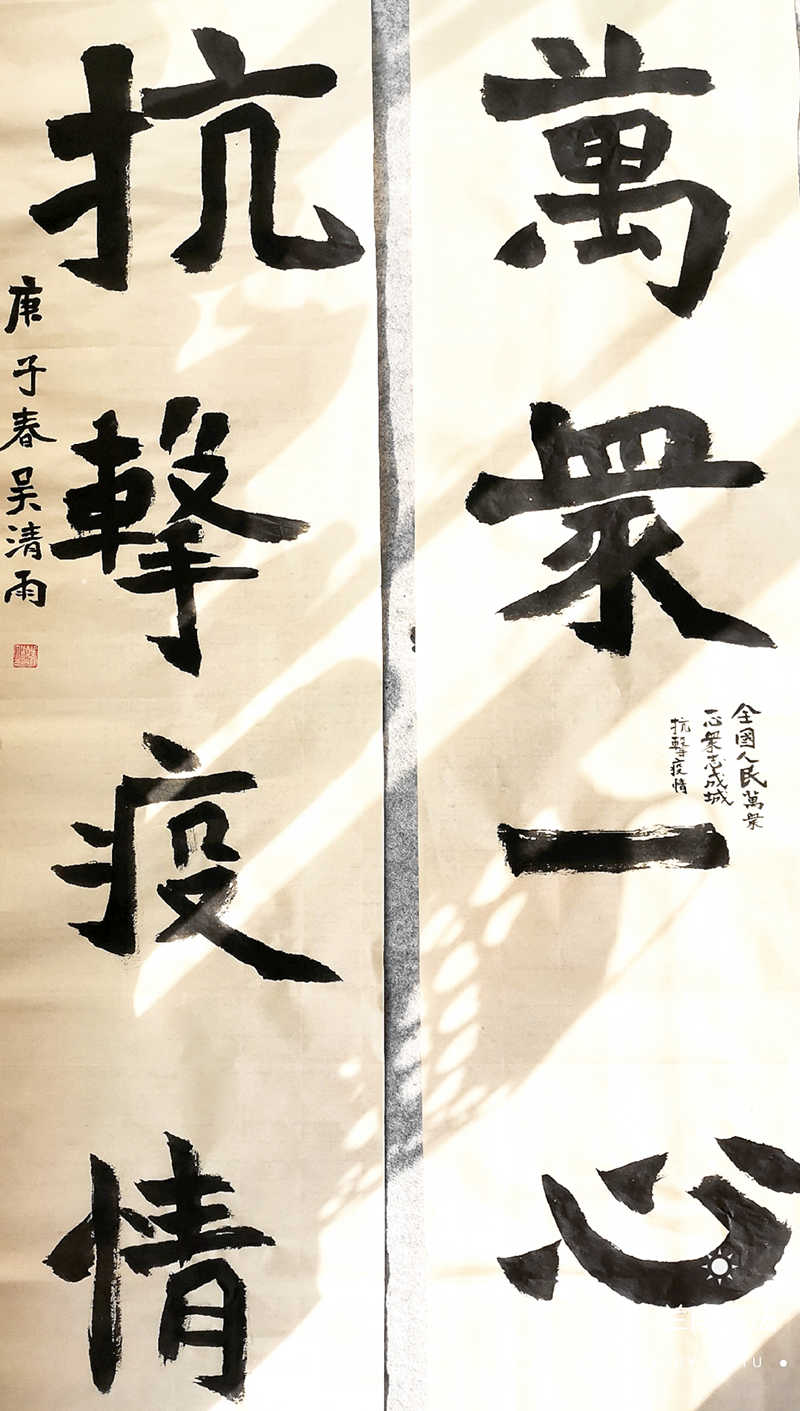 萬眾一心
全國人民萬衆
一心衆志成城
抗擊疫情
抗擊疫情
庚子春吴清雨